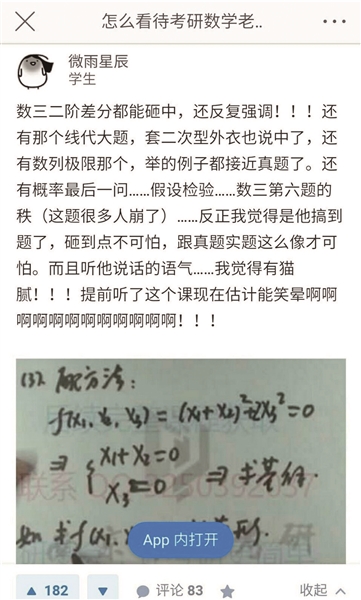 怎么看待考研数学老..
微雨星辰
学生
数三二阶差分都能砸中，还反复强调！！！还
有那个线代大题，套二次型外衣也说中了，还
有数列极限那个，举的例子都接近真题了。还
有概率最后一问……假设检验……数三第六题的
秩（这题很多人崩了）……反正我觉得是他搞到
题了，砸到点不可怕，跟真题实题这么像才可
怕。而且听他说话的语气……我觉得有猫
腻！！！提前听了这个课现在估计能笑晕啊啊
啊啊啊啊啊啊啊啊啊啊啊！！！
(3). 配方法：
f(x₁, x₂, x₃) = (x₁+x₂)²+2x₃² = 0
⇒ { x₁+x₂=0
x₃=0 ⇒ 求基础
联系
App 内打开
182 评论 83 收起